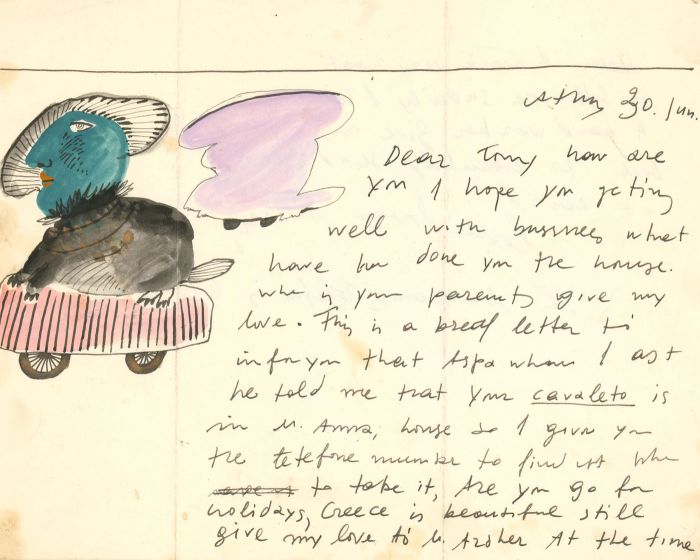 20. Jun.
Dear Tony how are
you I hope you geting
well with bussnees what
have you done you the house.
who is your parents give my
love. This is a breaf letter to
infor you that Aspa whom I ast
he told me that your cavaleto is
in M. Anna, house so I given you
the telefone number to find it when
to take it, Are you go for
holidays, Greece is beautiful still
give my love to M. At the time